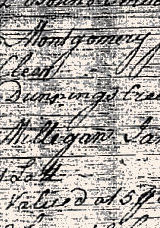 Montgomery
Clear
Dunnings Cree
Milligan La
1 Lott
Valued at 5